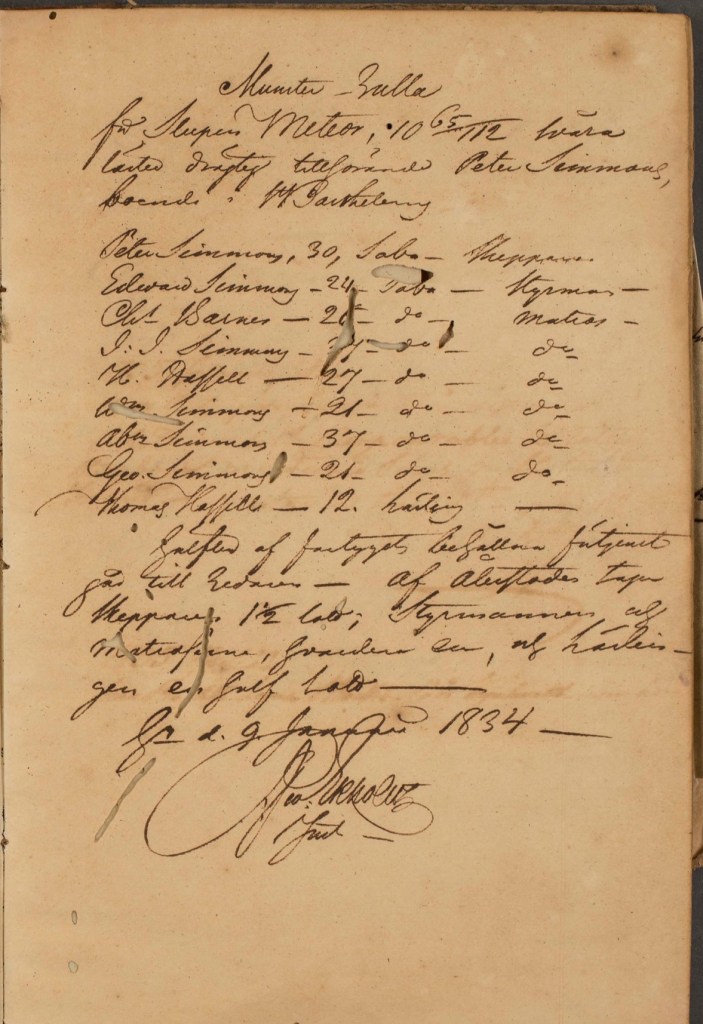 Munster Rulla
för Slupen Meteor, 10 65/112 svåra
läster drägtig tillhörande Peter Simmons,
boende i St Barthelemy
Peter Simmons, 30, Saba — Skeppare
Edward Simmons — 24 — Saba — Styrman —
Cht Barnes — 26 — do — Matros —
J. J. Simmons — 37 — do — do
H. Hassell — 27 — do — do
Wm Simmons — 21 — do — do
Abm Simmons — 37 — do — do
Geo. Simmons — 21 — do — do
Thomas Hassell — 12. kärling —
Halften af fartygets behållna förtjenst
går till Redaren — Af återstoden tager
Skepparen 1 1/2 lod; Styrmannen och
Matroserne, hvardera en, och kärlin-
gen en half lod —
Gu d. 9 Januarii 1834 —
Geo. Ekholtz